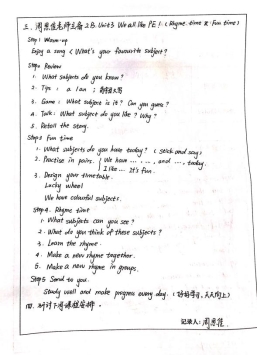 三. 周思佳老师主备 2B Unit3 We all like PE! (Rhyme time & Fun time)
Step1 Warm-up
Enjoy a song (What's your favourite subject?
Step2 Review
1. What subjects do you know?
2. Tips: a / an ;
3. Game: What subject is it? Can you guess?
4. Talk: What subject do you like? Why?
5. Retell the story.
Step3 Fun time
1. What subjects do you have today? (stick and say)
2. Practise in pairs. We have ..., ..., and ... today.
I like ... It's fun.
3. Design your timetable.
Lucky wheel
We have colourful subjects.
Step4. Rhyme time
1. What subjects can you see?
2. What do you think of these subjects?
3. Learn the rhyme.
4. Make a new rhyme together.
5. Make a new rhyme in groups.
Step5 Send to you.
Study well and make progress every day. (好好学习,天天向上)
四. 研讨下周课程安排.
记录人: 周思佳